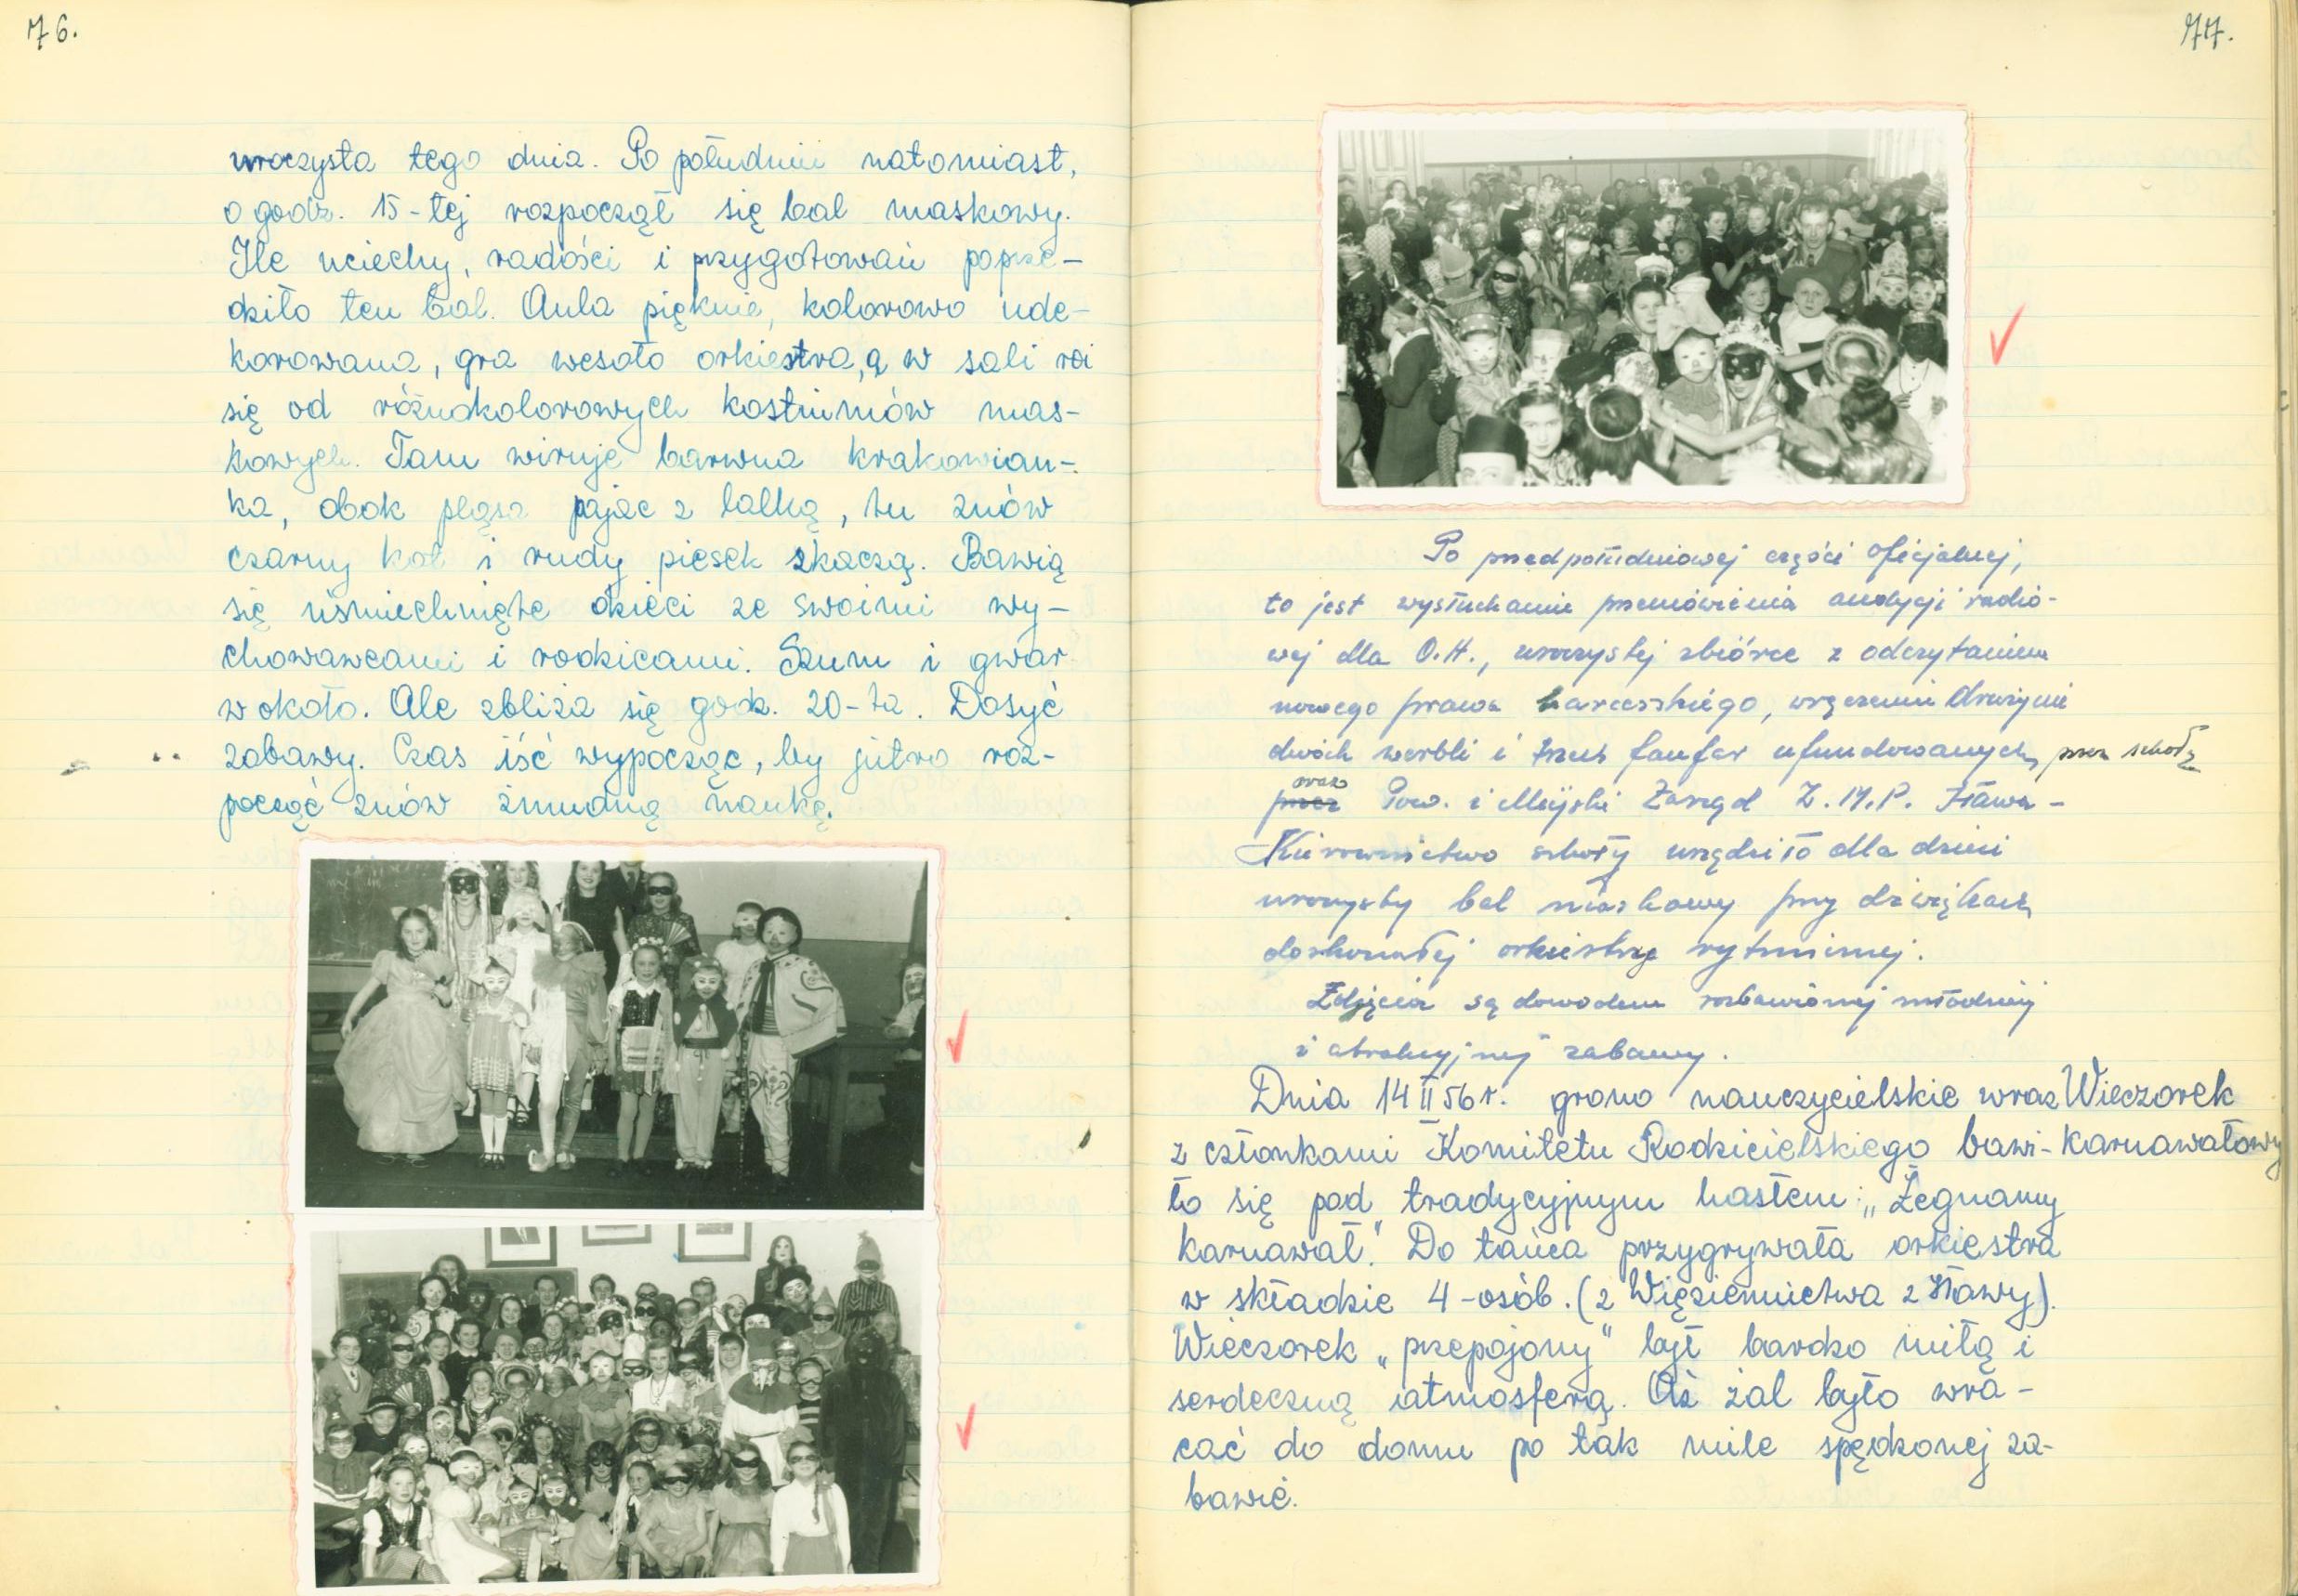 76.
uroczysta tego dnia. Po południu natomiast,
o godz. 15-tej rozpoczął się bal maskowy.
Ile uciechy, radości i przygotowań poprze-
dziło ten bal. Aula pięknie, kolorowo ude-
korowana, gra wesoło orkiestra, a w sali roi
się od różnokolorowych kostiumów mas-
kowych. Tam wiruje barwna krakowian-
ka, obok pląsa pajac z lalką, tu znów
czarny kot i rudy piesek skaczą. Bawią
się uśmiechnięte dzieci ze swoimi wy-
chowawcami i rodzicami. Szum i gwar
wokoło. Ale zbliża się godz. 20-ta. Dosyć
zabawy. Czas iść wypocząć, by jutro roz-
począć znów żmudną naukę.
77.
Po przedpołudniowej części oficjalnej,
to jest wysłuchaniu przemówienia audycji radio-
wej dla O.H., uroczystej zbiórce z odczytaniem
nowego prawa harcerskiego, wręczeniu drużynie
dwóch werbli i trzech fanfar ufundowanych przez szkołę
oraz
przez Pow. i Miejski Zarząd Z.M.P. Iława -
Kierownictwo szkoły urządziło dla dzieci
uroczysty bal maskowy przy dźwiękach
doskonałej orkiestry rytmicznej.
Zdjęcia są dowodem rozbawionej młodzieży
i atrakcyjnej zabawy.
Dnia 14 II 56 r. grono nauczycielskie wraz Wieczorek
z członkami Komitetu Rodzicielskiego bawi- karnawałowy
ło się pod tradycyjnym hasłem: „Żegnamy
karnawał." Do tańca przygrywała orkiestra
w składzie 4-osób. (z Więziennictwa z Iławy).
Wieczorek „przepojony" był bardzo miłą i
serdeczną atmosferą. Aż żal było wra-
cać do domu po tak mile spędzonej za-
bawie.